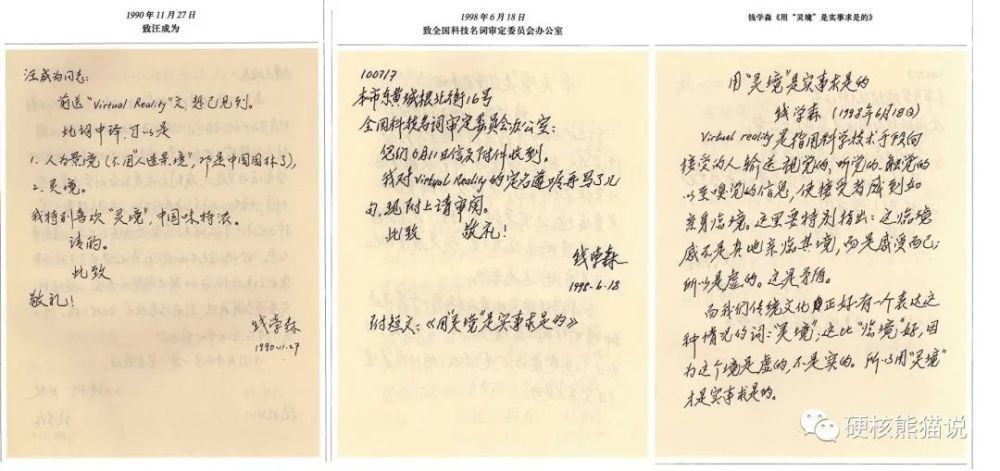 1990 年 11 月 27 日
致汪成为
汪成为同志:
前送“Virtual Reality”文,想已见到。
此词中译,可以是
1. 人为景境(不用“人造景境”,那是中国园林了),
2. 灵境。
我特别喜欢“灵境”,中国味特浓。
请酌。
此致
敬礼!
钱学森
1990.11.27
1998 年 6 月 18 日
致全国科技名词审定委员会办公室
100717
本市东黄城根北街16号
全国科技名词审定委员会办公室:
您们6月11日信及附件收到。
我对Virtual Reality的定名遵嘱再写了几
句,现附上请审阅。
此致 敬礼!
钱学森
1998.6.18
附短文:《用“灵境”是实事求是的》
钱学森《用“灵境”是实事求是的》
用“灵境”是实事求是的
钱学森(1998年6月18日)
Virtual reality是指用科学技术手段向
接受的人输送视觉的、听觉的、触觉的
以至嗅觉的信息,使接受者感到如
亲身临境。这里要特别指出:这临境
感不是真地亲临其境,而是感受而已;
所以是虚的。这是矛盾。
而我们传统文化正好有一个表达这
种情况的词:“灵境”;这比“临境”好,因
为这个境是虚的,不是实的。所以用“灵境”
才是实事求是的。
硬核熊猫说